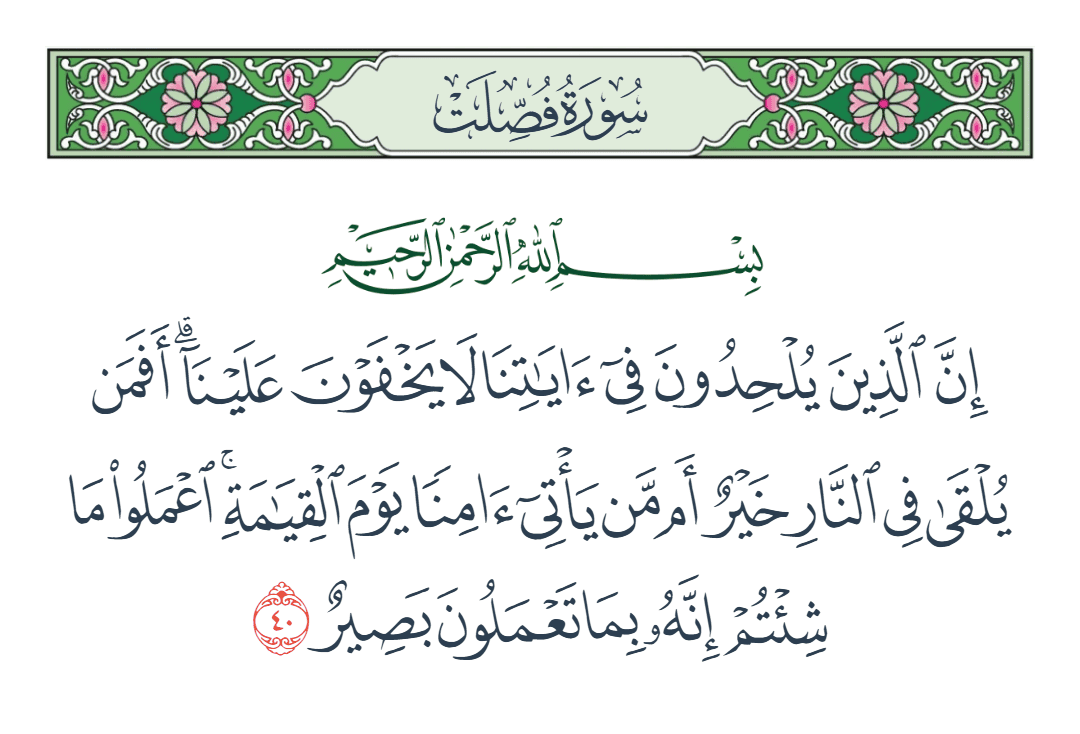 سُورَةُ فُصِّلَتْ
بِسْمِ ٱللَّهِ ٱلرَّحْمَٰنِ ٱلرَّحِيمِ
إِنَّ ٱلَّذِينَ يُلْحِدُونَ فِىٓ ءَايَـٰتِنَا لَا يَخْفَوْنَ عَلَيْنَآ ۗ أَفَمَن
يُلْقَىٰ فِى ٱلنَّارِ خَيْرٌ أَم مَّن يَأْتِىٓ ءَامِنًا يَوْمَ ٱلْقِيَـٰمَةِ ۚ ٱعْمَلُوا۟ مَا
شِئْتُمْ إِنَّهُۥ بِمَا تَعْمَلُونَ بَصِيرٌ ٤٠